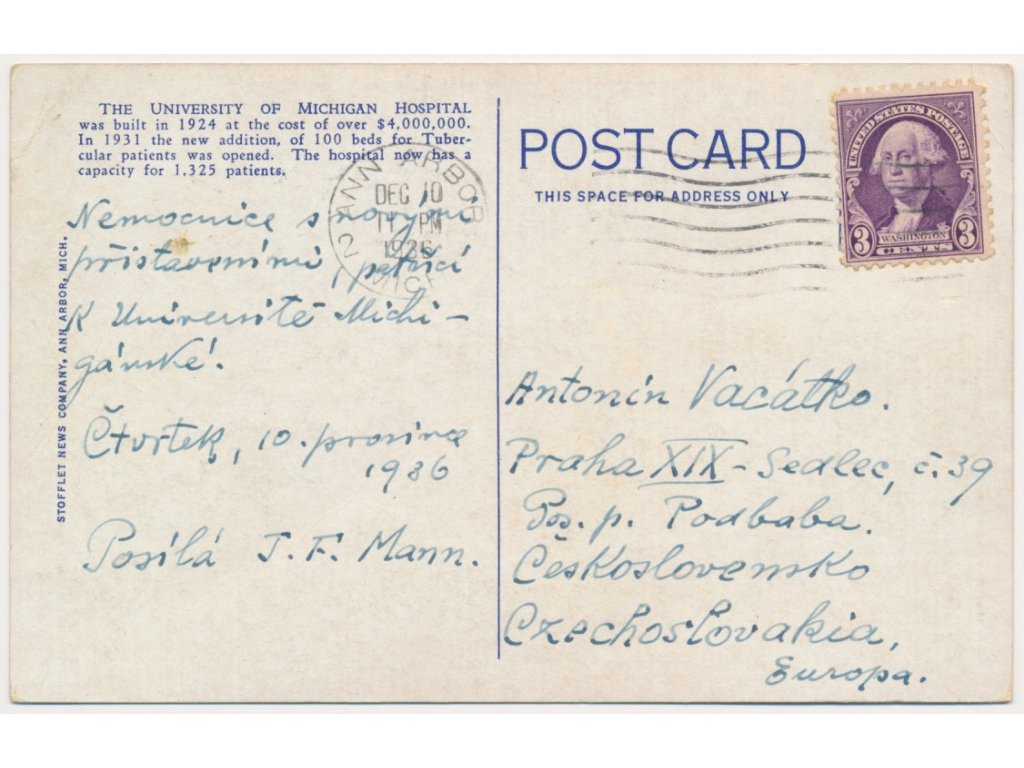 THE UNIVERSITY OF MICHIGAN HOSPITAL
was built in 1924 at the cost of over $4,000,000.
In 1931 the new addition, of 100 beds for Tuber-
cular patients was opened. The hospital now has a
capacity for 1,325 patients.
Nemocnice s novými
přístaveními, patřící
K Universitě Michi-
gánské.
Čtvrtek, 10. prosince
1936
Posílá J. F. Mann.
STOFFLET NEWS COMPANY, ANN ARBOR, MICH.
ANN ARBOR
DEC 10
11 PM
1936
2 MICH
POST CARD
THIS SPACE FOR ADDRESS ONLY
UNITED STATES POSTAGE
WASHINGTON
3 CENTS 3
Antonín Vacátko.
Praha XIX - Sedlec, č. 39
Pos. p. Podbaba.
Československo
Czechoslovakia,
Europa.